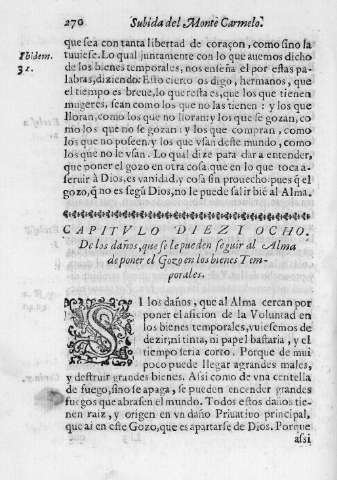 270 Subida del Monte Carmelo.
que sea con tanta libertad de coraçon, como sino la
Ibidem. tuuiese. Lo qual juntamente con lo que auemos dicho
32. de los bienes temporales, nos enseña el por estas pa-
labras, diziendo: Esto cierto os digo, hermanos, que
el tiempo es breue, lo que resta es, que los que tienen
mugeres, sean como los que no las tienen: y los que
lloran, como los que no lloran: y los que se gozan, co
mo los que no se gozan: y los que compran, como
los que no poseen, y los que vsan deste mundo, como
los que no le vsan. Lo qual dize para dar a entender,
que poner el gozo en otra cosa, que en lo que toca a
seruir à Dios, es vanidad, y cosa sin prouecho: pues q̃ el
gozo, q̃ no es segũ Dios, no le puede salir biẽ al Alma.
CAPITVLO DIEZ I OCHO.
De los daños, que se le pueden seguir al Alma
de poner el Gozo en los bienes Tem-
porales.
SI los daños, que al Alma cercan por
poner el aficion de la Voluntad en
los bienes temporales, vuiesemos de
dezir, ni tinta, ni papel bastaria, y el
tiempo seria corto. Porque de mui
poco puede llegar a grandes males,
y destruir grandes bienes. Assi como de vna centella
de fuego, sino se apaga, se pueden encender grandes
fuegos que abrasen el mundo. Todos estos daños tie-
nen raiz, y origen en vn daño Priuatiuo principal,
que ai en este Gozo, que es apartarse de Dios. Porque
assi